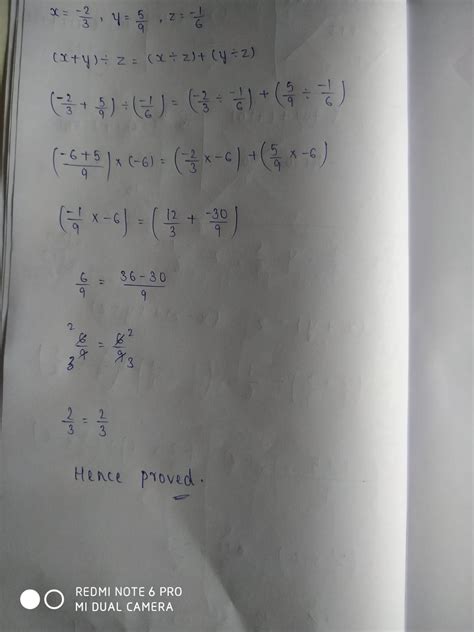 x = -2/3 , y = 5/9 , z = -1/6
(x+y) ÷ z = (x ÷ z) + (y ÷ z)
(-2/3 + 5/9) ÷ (-1/6) = (-2/3 ÷ -1/6) + (5/9 ÷ -1/6)
((-6+5)/9) × (-6) = (-2/3 × -6) + (5/9 × -6)
(-1/9 × -6) = (12/3 + -30/9)
6/9 = (36-30)/9
2 6/9 3 = 6 2/9 3
2/3 = 2/3
Hence proved.
REDMI NOTE 6 PRO
MI DUAL CAMERA